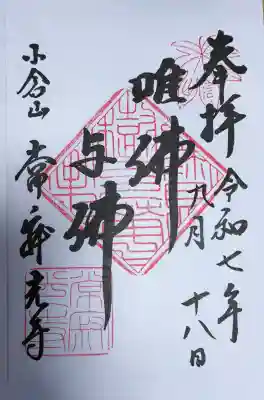 奉拝
令和七年
九月
十八日
唯佛
与佛
小倉山
常寂光寺